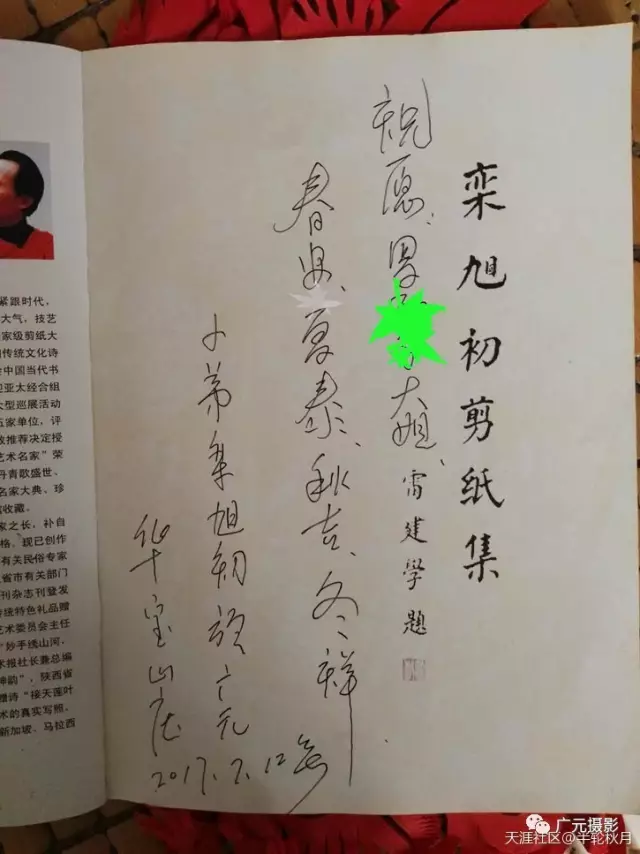 栾旭初剪纸集
雷建學題
祝愿
大姐、
春安、夏泰、秋吉、冬祥
小弟栾旭初于广元
宝山庄
2017.7.12
紧跟时代,
大气,技艺
家级剪纸大
传统文化诗
中国当代书
亚太经合组
型巡展活动
五家单位,评
推荐决定授
艺术名家”荣
丹青歌盛世、
名家大典、珍
收藏。
家之长,补自
格、现已创作
有关民俗专家
省市有关部门
刊杂志刊登发
传统特色礼品赠
艺术委员会主任
“妙手绣山河,
术报社长兼总编
神韵”,陕西省
赠诗“接天莲叶
术的真实写照。
新加坡、马拉西
广元摄影
天涯社区@半轮秋月